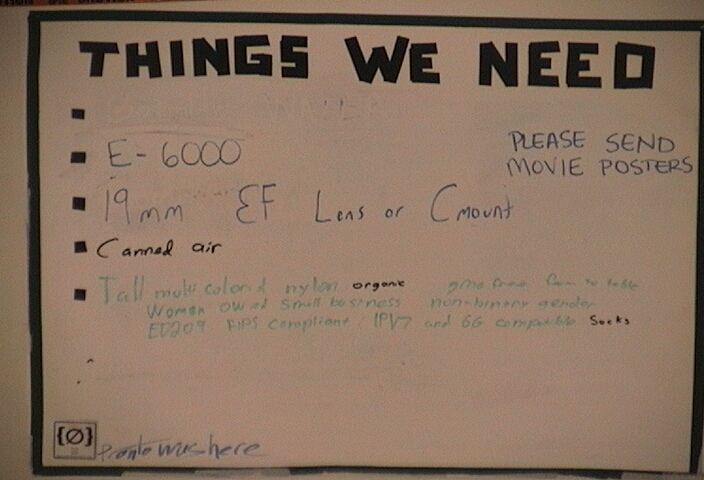 THINGS WE NEED
E-6000
PLEASE SEND
MOVIE POSTERS
19mm EF Lens or Cmount
Canned air
Tall multi colored nylon organic gmo free farm to table
Women owned small business non-binary gender
ED209 FIPS compliant IPV7 and 6G compatible Socks
{Ø}
Pronto was here